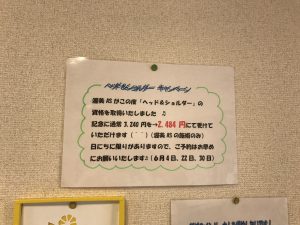 ヘッド&ショルダー キャンペーン
渥美ASがこの度「ヘッド&ショルダー」の
資格を取得いたしました♪
記念に通常3,240円を→2,484円にて受けて
いただけます(^^)(渥美ASの施術のみ)
日にちに限りがありますので、ご予約はお早め
にお願いいたします♪(6月4日、22日、30日)